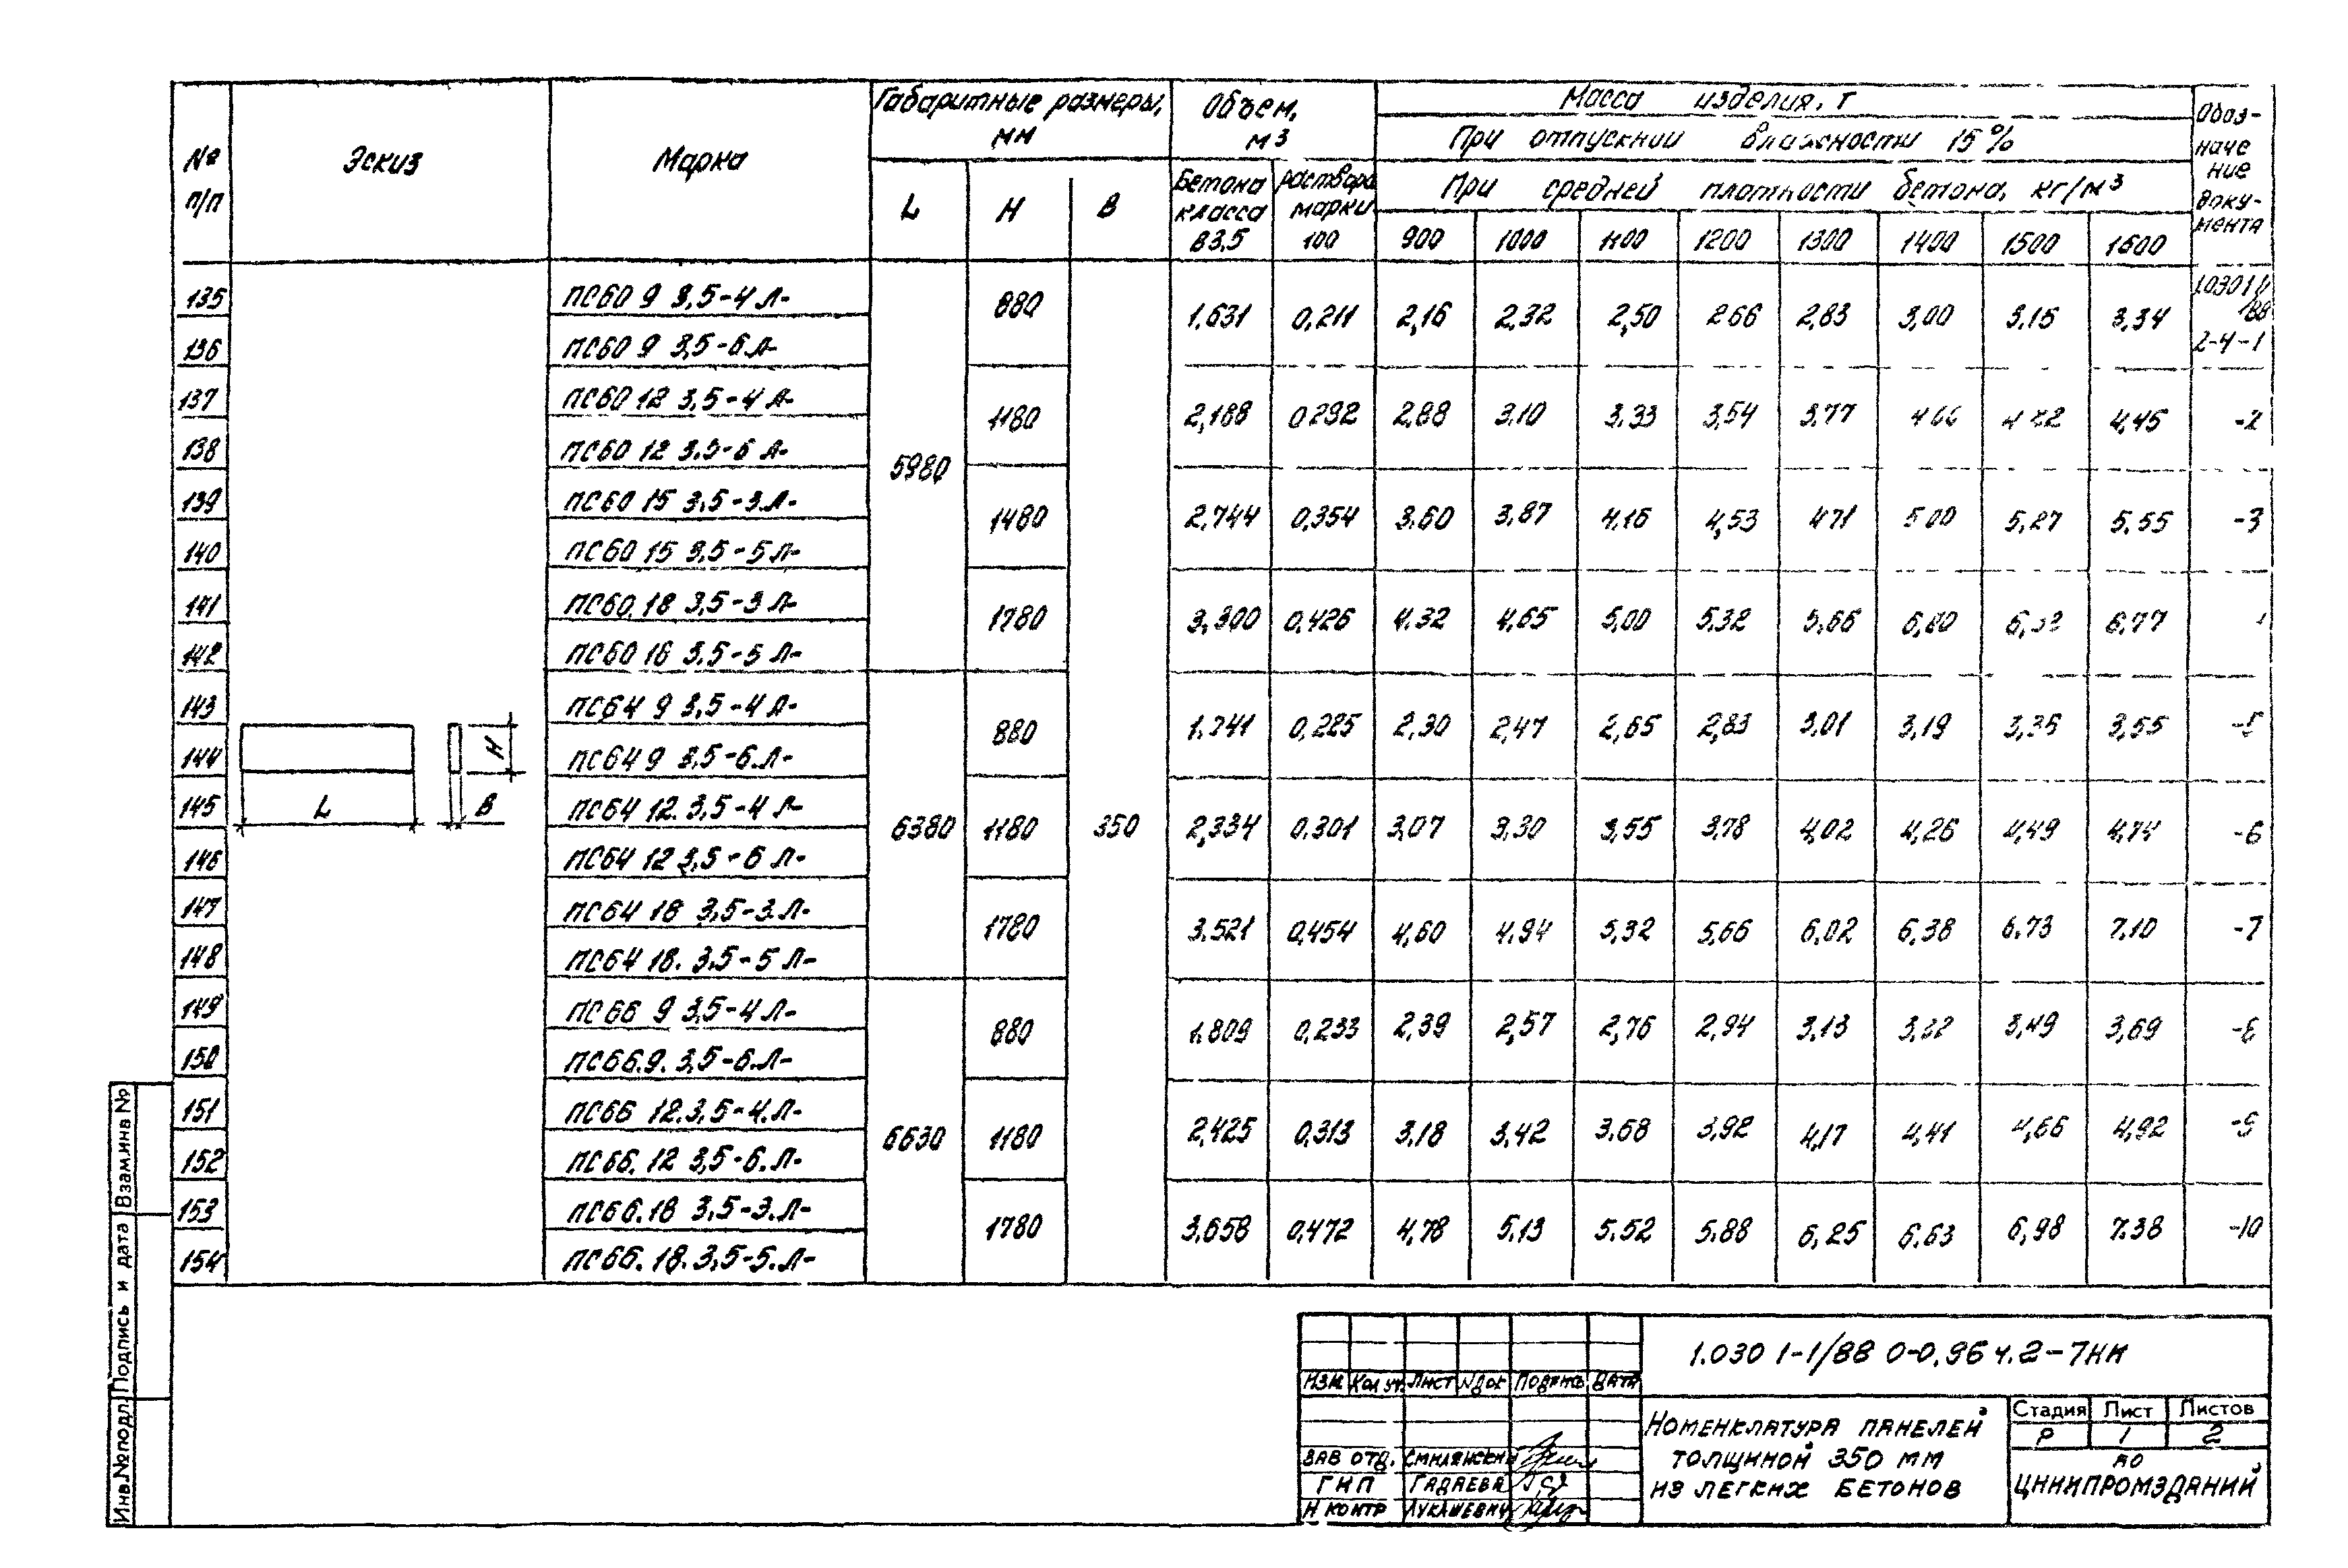 № п/п
Эскиз
Марка
Габаритные размеры, мм
L H B
Объем, м3
Бетона класса В3,5
раствора марки 100
Масса изделия, т
При отпускной влажности 15%
При средней плотности бетона, кг/м3
900 1000 1100 1200 1300 1400 1500 1600
Обозначение документа
135 ПС60 9 3,5-4 Л- 5980 880 350 1,631 0,211 2,16 2,32 2,50 2 66 2,83 3,00 3,15 3,34 2-4-1
136 ПС60 9 3,5-6 Л-
137 ПС60 12 3,5-4 Л- 1180 2,188 0292 2,88 3,10 3,33 3,54 3,77 4,45 -2
138 ПС60 12 3,5-6 Л-
139 ПС60 15 3,5-3.Л- 1480 2,744 0,354 3.60 3,87 4,16 4,53 4 71 5 00 5,27 5.55 -3
140 ПС60 15 3,5-5 Л-
141 ПС60. 18 3,5-3 Л- 1780 3,300 0,426 4.32 4,65 5,00 5,32 5,66 6,00 6,77
142 ПС60 18 3,5-5 Л-
143 ПС64 9 3,5-4 Л- 6380 880 1.741 0,225 2,30 2,47 2,65 2,83 3,01 3,19 3,35 3,55 -5
144 ПС64 9 3,5-6.Л-
145 ПС64 12. 3,5-4 Л- 1180 2,334 0,301 3,07 3,30 3,55 3,78 4,02 4,26 4,49 4,74 -6
146 ПС64 12 3,5-6 Л-
147 ПС64 18 3,5-3.Л- 1780 3.521 0,454 4,60 4.94 5,32 5,66 6,02 6,38 6.73 7.10 -7
148 ПС64 18. 3,5-5 Л-
149 ПС66 9 3,5-4 Л- 6630 880 1.809 0,233 2,39 2,57 2,76 2,94 3,13 3,32 3,49 3,69 -8
150 ПС66.9. 3,5-6.Л-
151 ПС66 12.3,5-4.Л- 1180 2,425 0,313 3,18 3,42 3,68 3,92 4,17 4,41 4,66 4,92 -9
152 ПС66. 12 3,5-6.Л-
153 ПС66.18 3,5-3.Л- 1780 3,658 0,472 4,78 5,13 5.52 5.88 6,25 6.63 6,98 7.38 -10
154 ПС66. 18. 3,5-5.Л-
L
B
H
Взам.инв №
Подпись и дата
Инв.№подл.
1.030 1-1/88 0-0,96 ч.2-7НИ
Изм Кол уч. Лист №док Подпись Дата
Зав отд. Смилянский
ГИП Гадаева
Н контр Лукашевич
Номенклатура панелей
толщиной 350 мм
из легких бетонов
Стадия Лист Листов
Р 1 2
АО
ЦНИИПРОМЗДАНИЙ